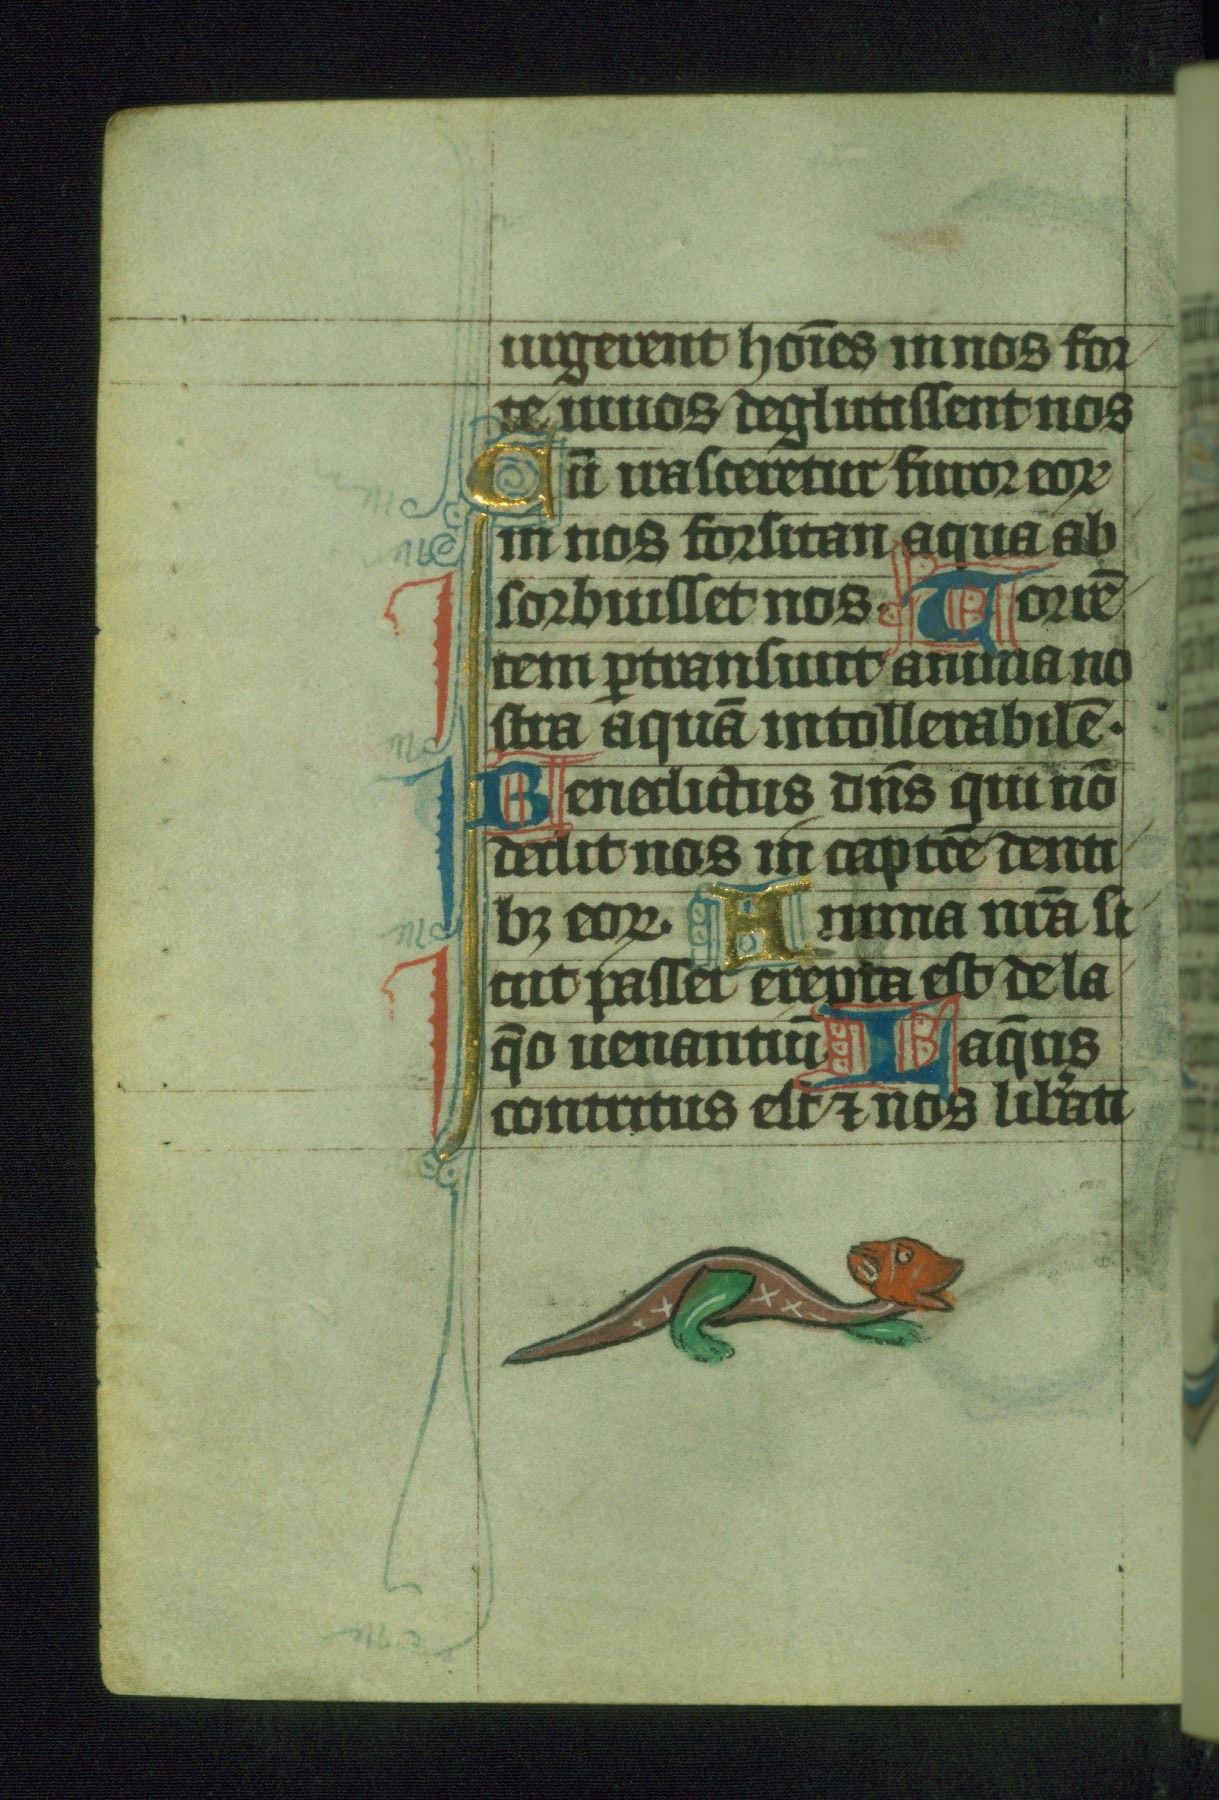 iurgerent hoīes in nos for
te uiuos deglutissent nos
Cū irasceretur furor eoꝝ
in nos forsitan aqua ab
sorbuisset nos. Torrē
tem ꝑtransiuit anima no
stra aquā intollerabilē.
Benedictus dn̄s qui nō
dedit nos in captiōē denti
bꝫ eoꝝ. Anima nr̄a si
cut passer erepta est de la
q̄o uenantiū Laq̄us
contritus est ⁊ nos lib̾ati